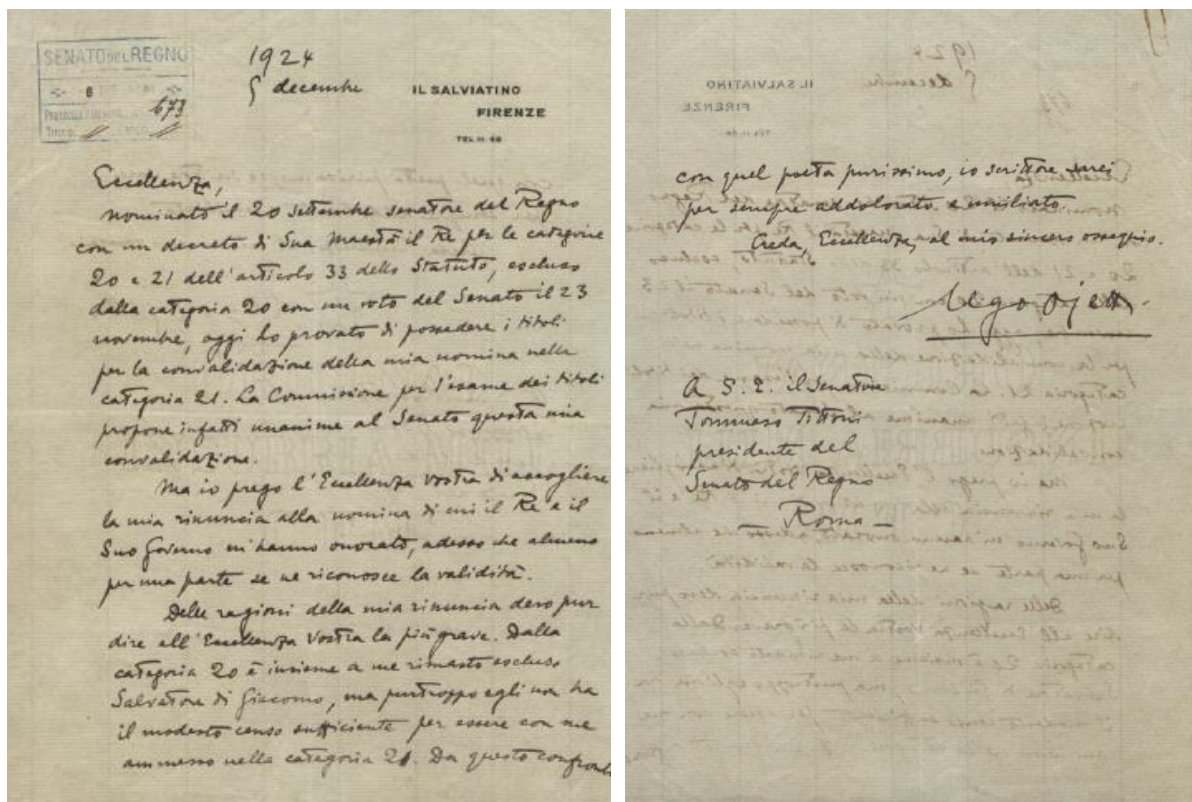 SENATO DEL REGNO
6
673
1924
5 decembre
IL SALVIATINO
FIRENZE
TEL 11-46
Eccellenza,
nominato il 20 settembre senatore del Regno
con un decreto di Sua Maestà il Re per le categorie
20 e 21 dell'articolo 33 dello Statuto, escluso
dalla categoria 20 con un voto del Senato il 23
novembre, oggi ho provato di possedere i titoli
per la convalidazione della mia nomina nella
categoria 21. La Commissione per l'esame dei titoli
propone infatti unanime al Senato questa mia
convalidazione.
Ma io prego l'Eccellenza Vostra di accogliere
la mia rinuncia alla nomina di cui il Re e il
Suo Governo m'hanno onorato, adesso che almeno
per una parte se ne riconosce la validità.
Delle ragioni della mia rinuncia devo pur
dire all'Eccellenza Vostra la più grave. Dalla
categoria 20 è insieme a me rimasto escluso
Salvatore di Giacomo, ma purtroppo egli non ha
il modesto censo sufficiente per essere con me
ammesso nella categoria 21. Da questo confronto
con quel poeta purissimo, io scrittore sarei
per sempre addolorato e umiliato.
Creda, Eccellenza, al mio sincero ossequio.
Ugo Ojetti
A S. E. il Senatore
Tommaso Tittoni
presidente del
Senato del Regno
— Roma —